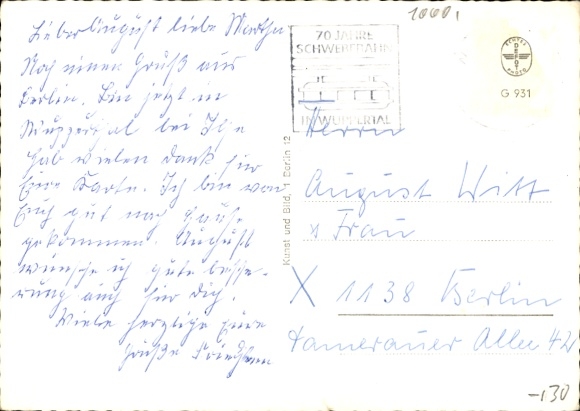 Lieber August liebe Martha
Noch einen Gruß aus
Berlin. Bin jetzt in
Wuppertal bei Ilse
Hab vielen Dank für
Eure Karte. Ich bin von
Euch gut nach Hause
gekommen. August
wünsche ich gute besse-
rung auch für Dich.
Viele herzliche Eure
Grüße
1000,
70 JAHRE
SCHWEBEBAHN
IN WUPPERTAL
ECHTES
DEFOT
PHOTO
G 931
Kunst und Bild, 1 Berlin 12
Herrn
August Witt
x Frau
X 1138 Berlin
Kamerauer Allee 42
-,30